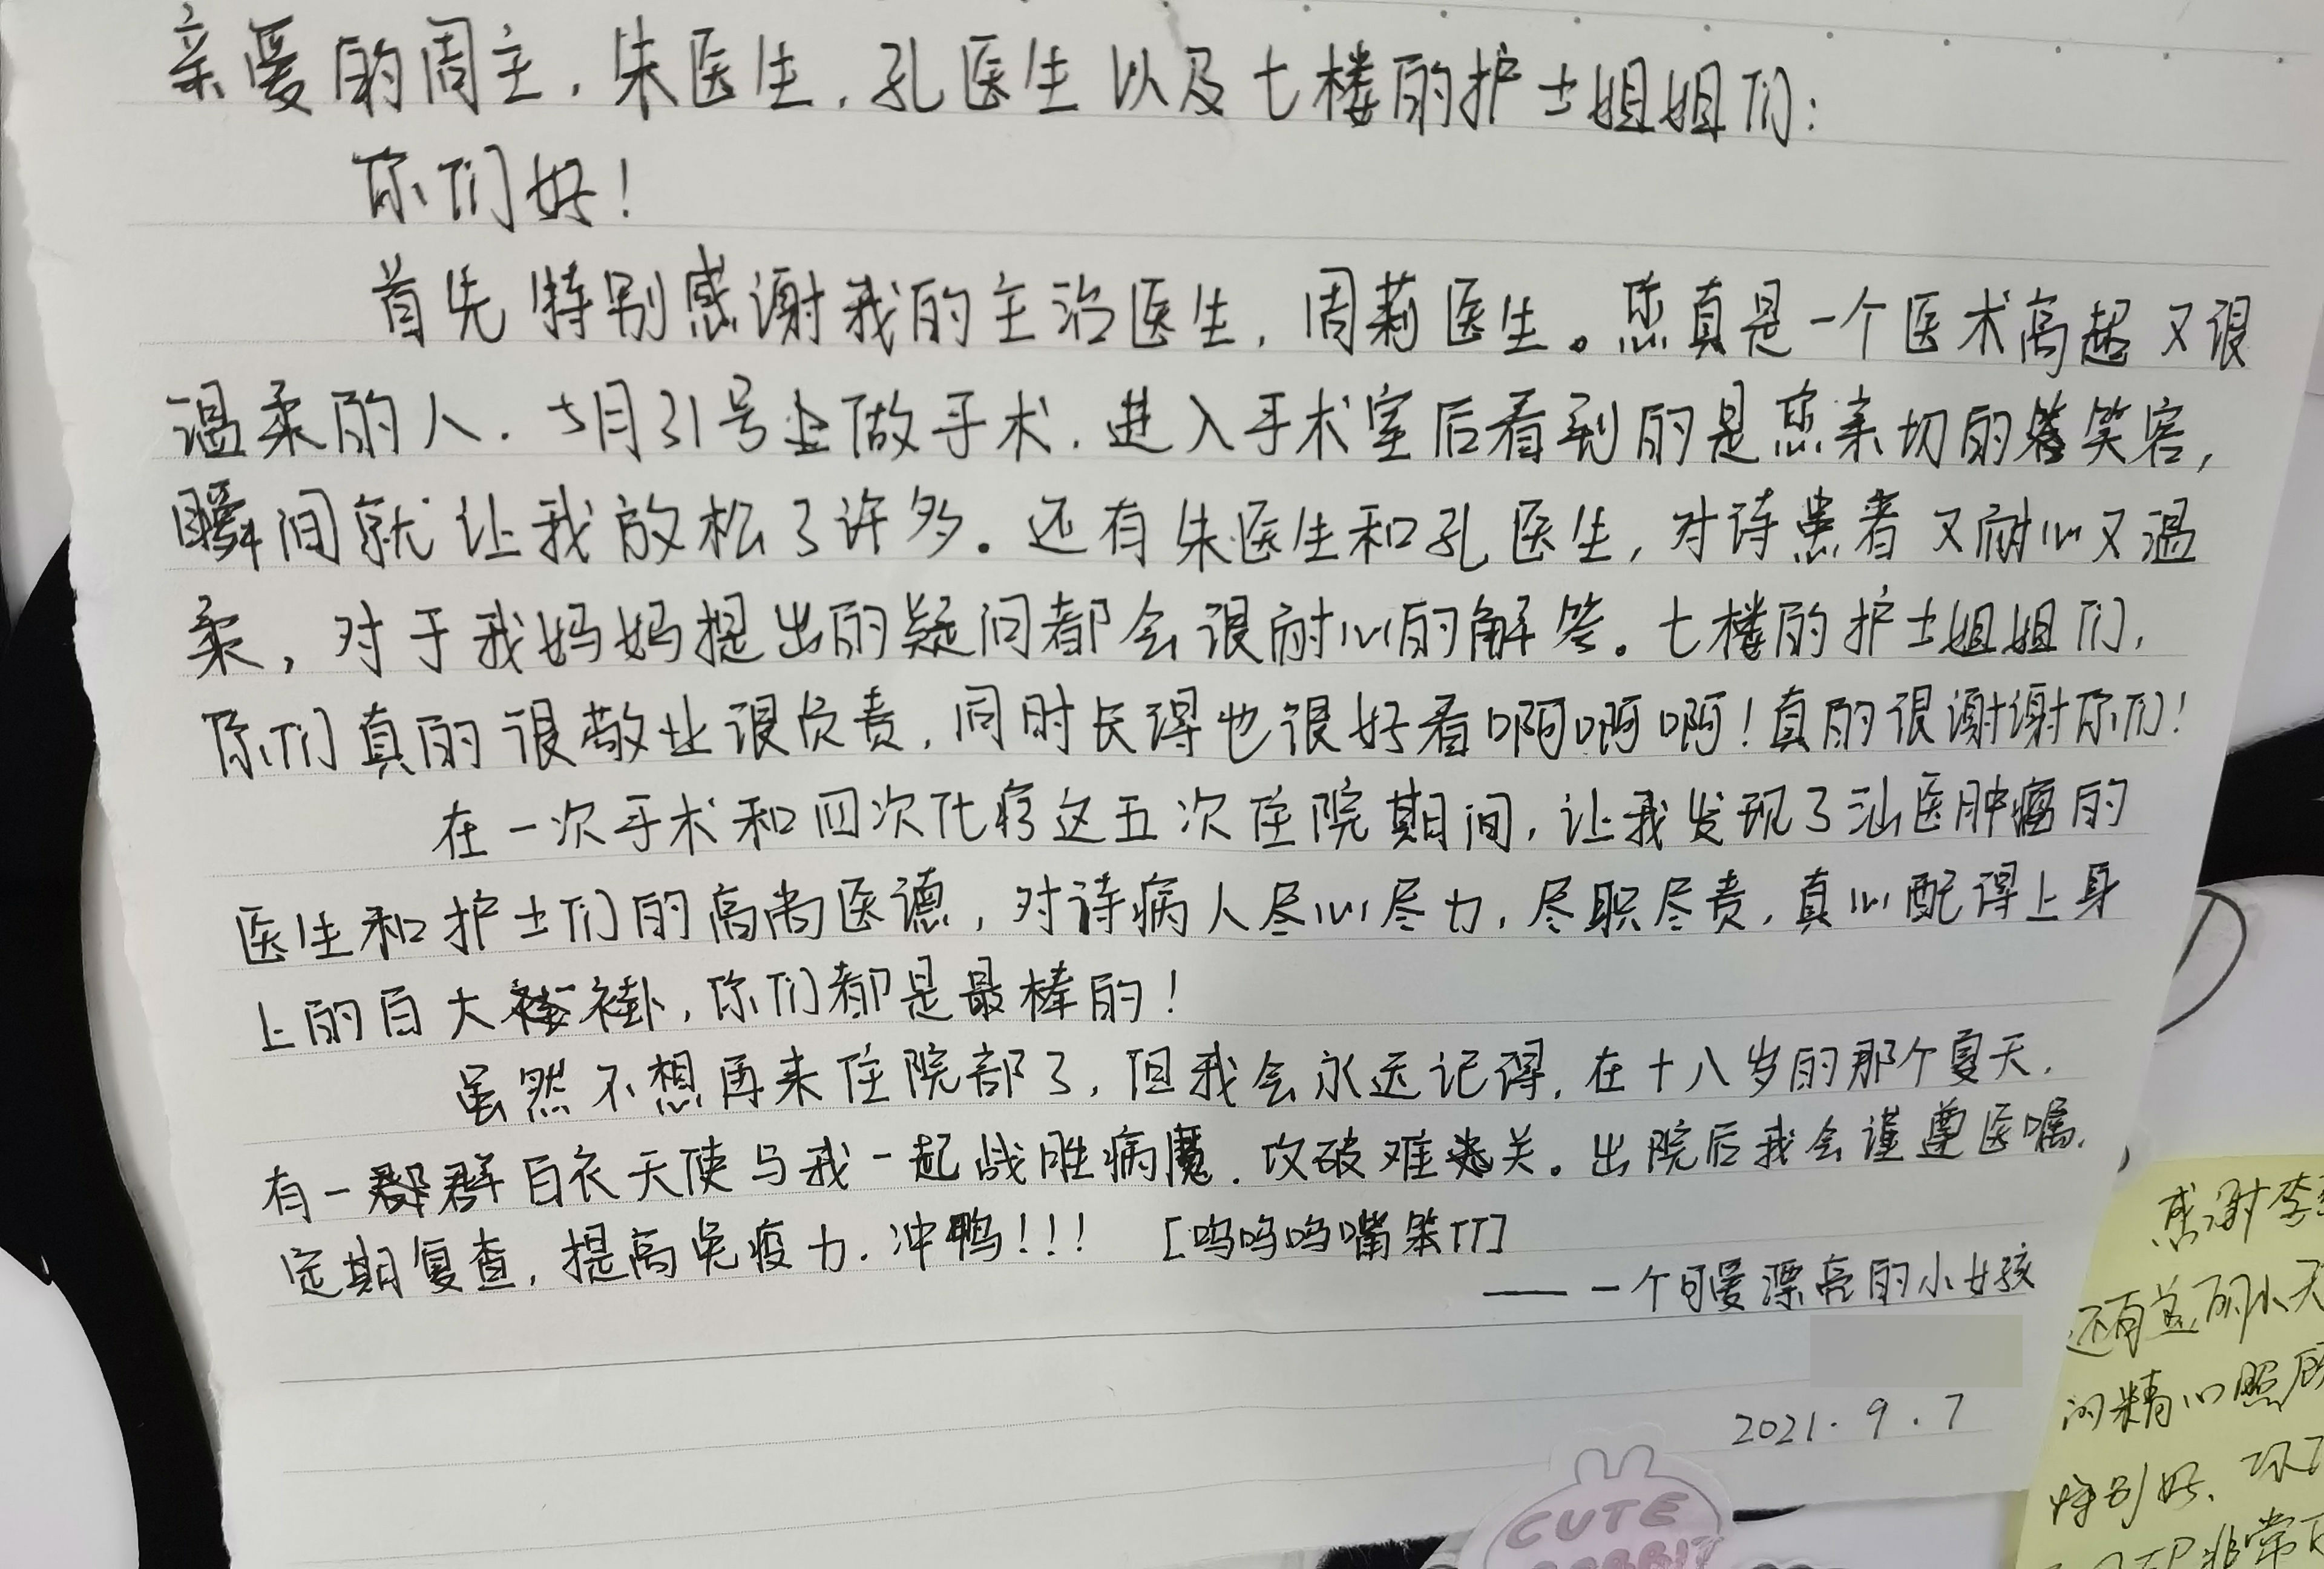 亲爱的周主，朱医生，孔医生以及七楼的护士姐姐们：
你们好！
首先特别感谢我的主治医生，周莉医生。您真是一个医术高超又很
温柔的人．5月31号做手术，进入手术室后看到的是您亲切的笑容，
瞬间就让我放松了许多。还有朱医生和孔医生，对待患者又耐心又温
柔，对于我妈妈提出的疑问都会很耐心的解答。七楼的护士姐姐们，
你们真的很敬业很负责，同时长得也很好看啊啊啊！真的很谢谢你们！
在一次手术和四次化疗这五次住院期间，让我发现了汕医肿瘤的
医生和护士们的高尚医德，对待病人尽心尽力，尽职尽责，真心配得上身
上的白大褂，你们都是最棒的！
虽然不想再来住院部了，但我会永远记得，在十八岁的那个夏天，
有一群白衣天使与我一起战胜病魔，攻破难关。出院后我会谨遵医嘱，
定期复查，提高免疫力．冲鸭！！！ [呜呜呜嘴笨TT]
——一个可爱漂亮的小女孩
2021.9.7
CUTE
RABBIT
感谢李
还有
的精心照顾
特别好，
非常